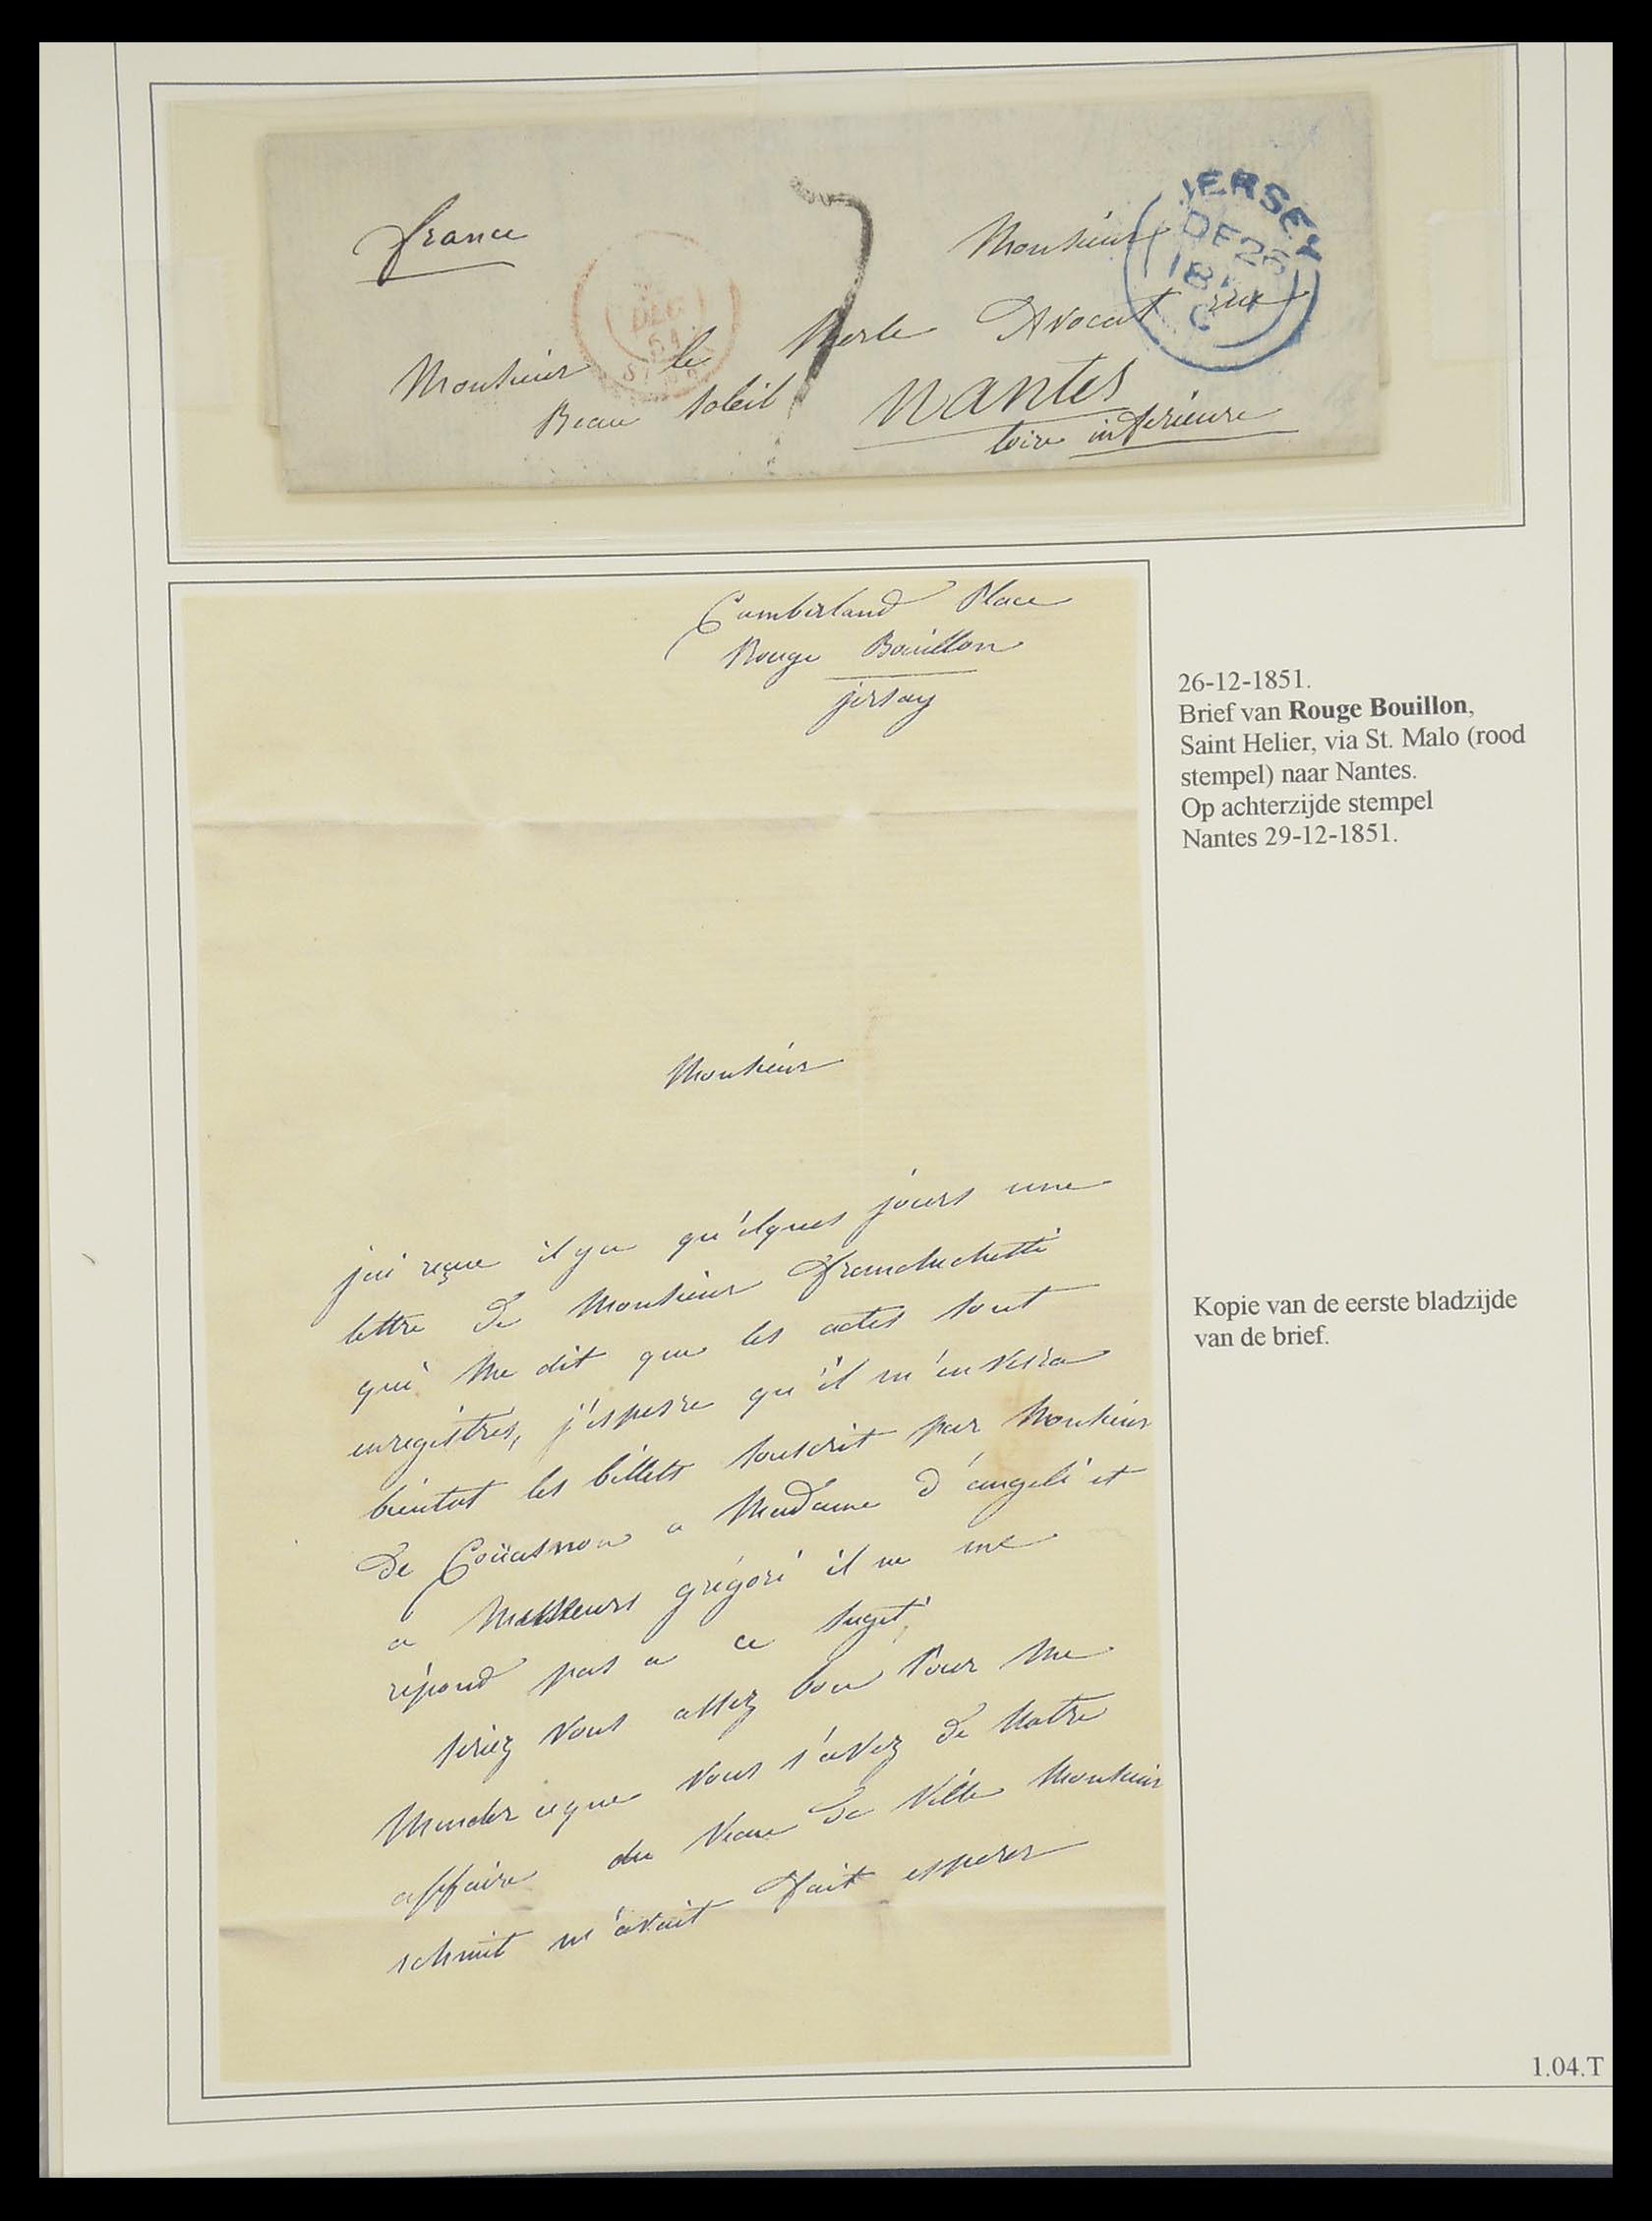 france
7
Monsieur
JERSEY
DE 26
18
C
DEC
51
ST
Monsieur le Merle Avocat rue
Beau Soleil Nantes
loire inferieure
Cumberland Place
Rouge Bouillon
jersay
26-12-1851.
Brief van Rouge Bouillon,
Saint Helier, via St. Malo (rood
stempel) naar Nantes.
Op achterzijde stempel
Nantes 29-12-1851.
Monsieur
jai reçue il ya qu'elques jours une
lettre de Monsieur
qui me dit que les actes sont
enregistrés, j'espere qu'il m'enverra
bientot les billets souscrit par Monsieur
de Coüasnon a Madame d'angeli et
a Messieurs grégori il ne me
répond pas a ce suget,
seriez vous assez bon pour me
Mander ceque vous s'avez de Notre
affaire du Veau de Ville Monsieur
schmit m'avait fait esperer
Kopie van de eerste bladzijde
van de brief.
1.04.T